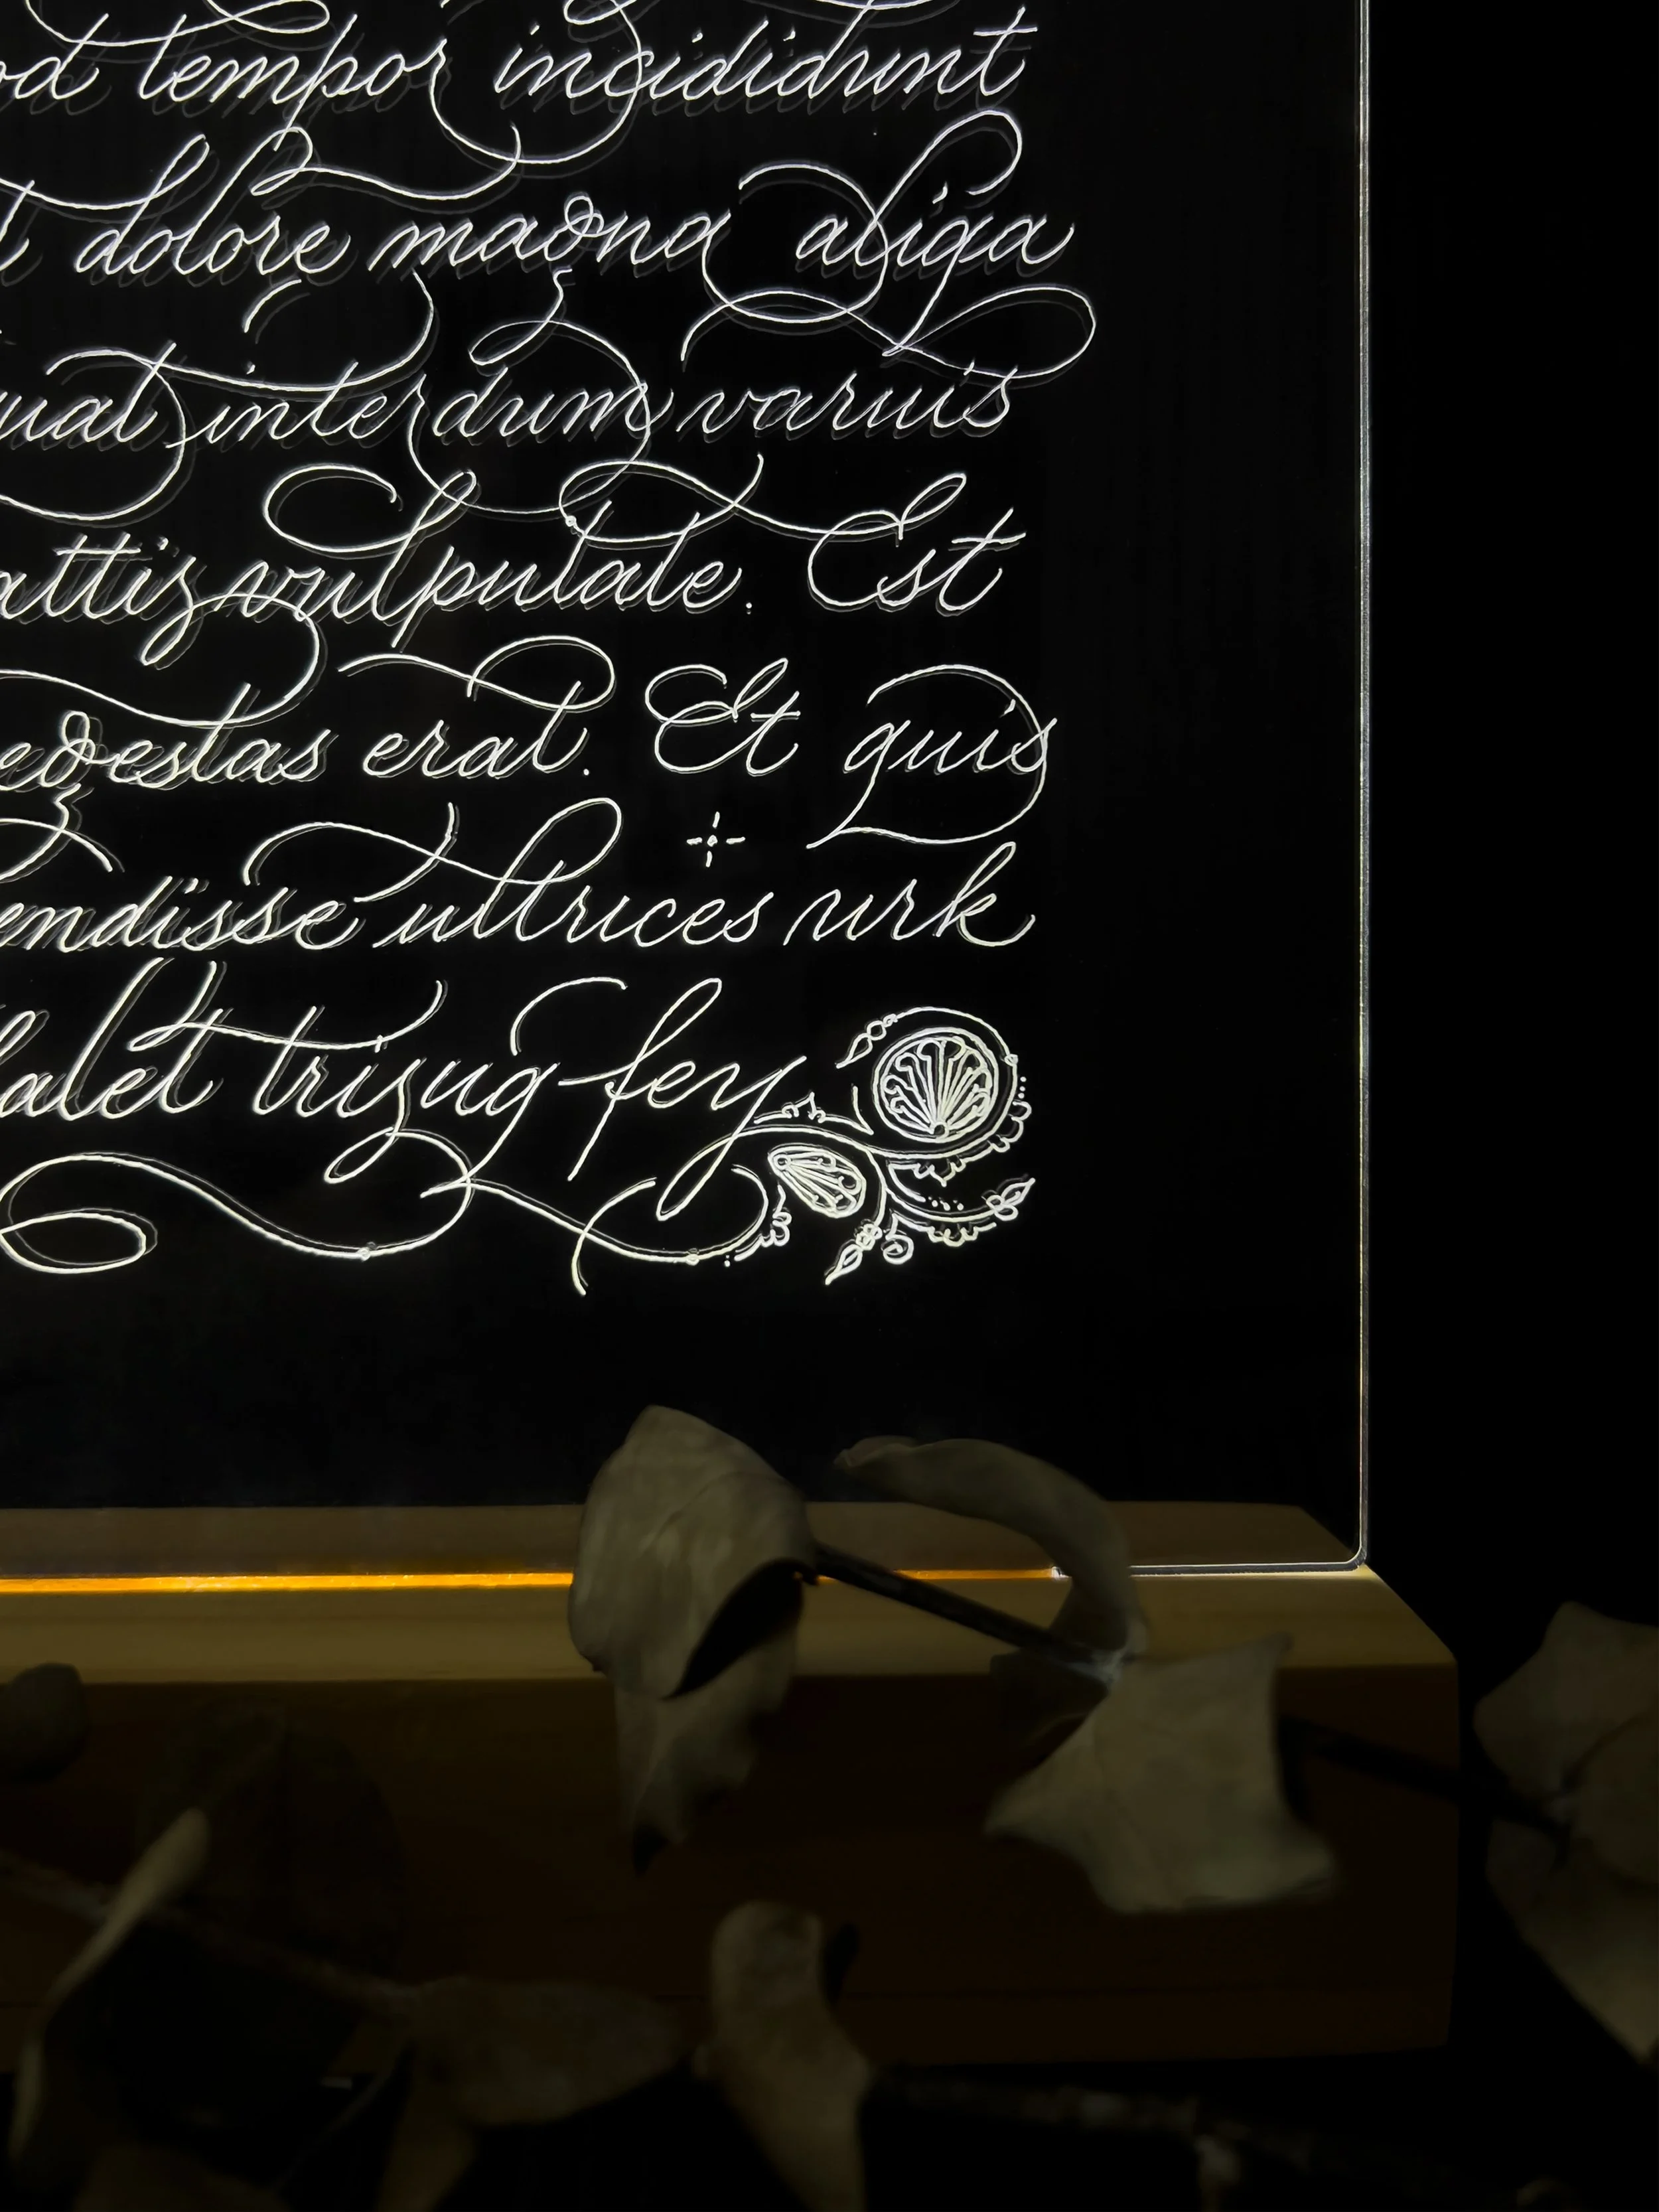 od tempor incididunt
t dolore magna aliqa
uat interdum varius
attis vulputate. Est
egestas erat. Et quis
endisse ultrices urk
lalet trizug fey